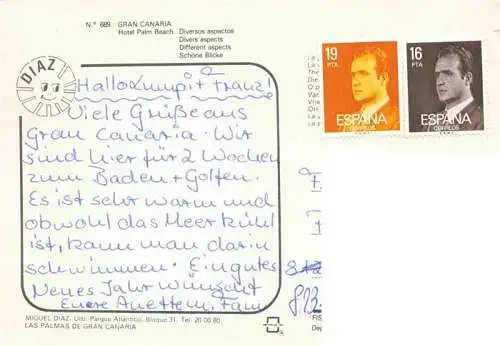 N.º 689 GRAN CANARIA
Hotel Palm Beach. Diversos aspectos
Divers aspects
Different aspects
Schöne Blicke
DIAZ
19
PTA
ESPAÑA
CORREOS
16
PTA
ESPAÑA
CORREOS
Franz!
Viele Grüße aus
Gran Canaria. Wir
sind hier für 2 Wochen
zum Baden + Golfen.
Es ist sehr warm und
obwohl das Meer kühl
ist, kann man darin
schwimmen. Ein gutes
Neues Jahr wünscht
Eure
MIGUEL DIAZ: Urb. Parque Atlántico, Bloque 31, Tel. 20 00 80
LAS PALMAS DE GRAN CANARIA